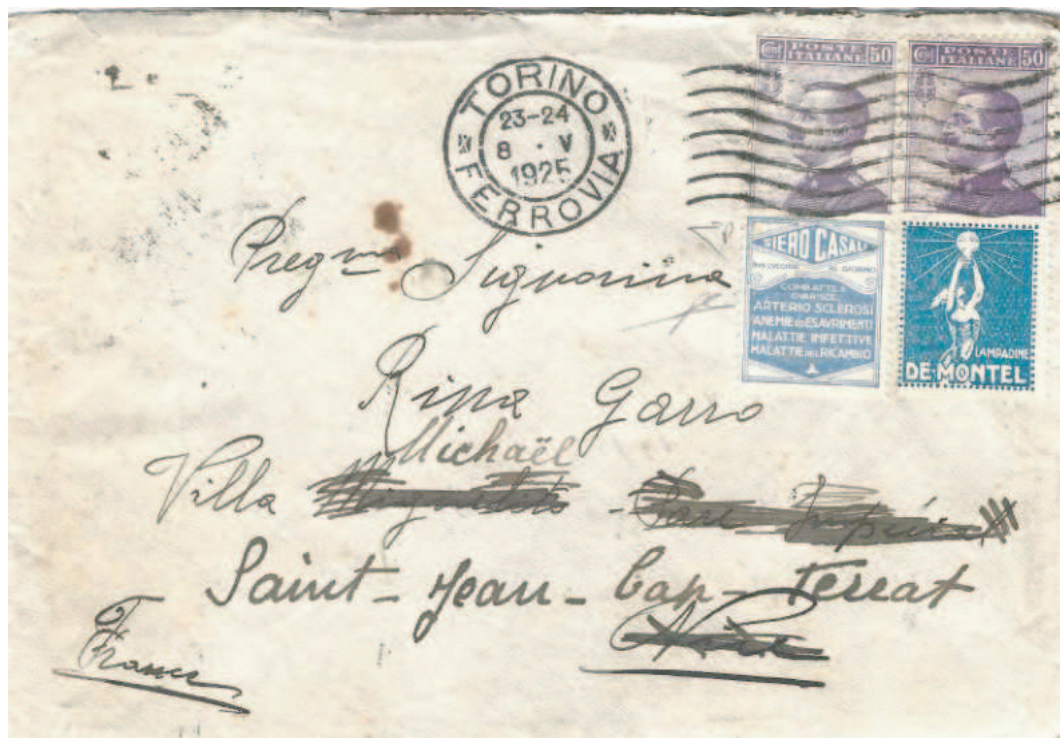 TORINO
23-24
8 . V
1925
FERROVIA
Cent POSTE ITALIANE 50
Cent POSTE ITALIANE 50
SIERO CASALI
COMBATTE L'
ARTERIO SCLEROSI
ANEMIE ed ESAURIMENTI
MALATTIE INFETTIVE
MALATTIE DEL RICAMBIO
LAMPADINE
DE MONTEL
Pregma Signorina
Rina Garro
Michaël
Villa
Saint-Jean-Cap-Ferrat
France